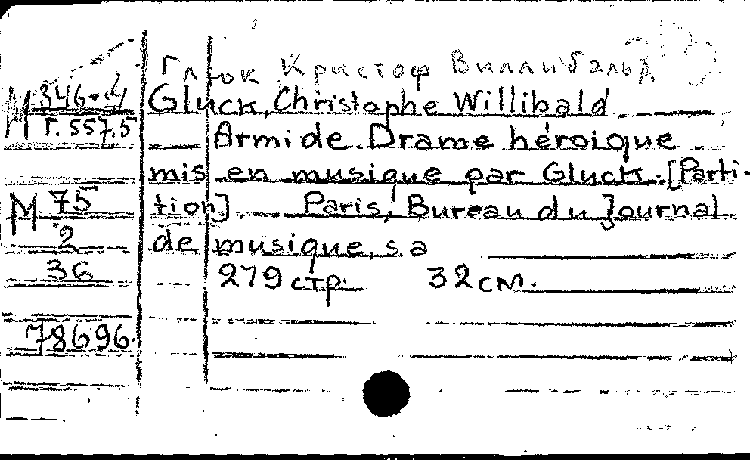 Глюк Кристоф Виллибальд
М 346-4
Г. 557.5
Gluck, Christophe Willibald
Armide. Drame héroique
mis en musique par Gluck. [Parti-
tion]. Paris, Bureau du Journal
de musique, s. a
279 стр. 32 см.
М 75
2
36
78696.